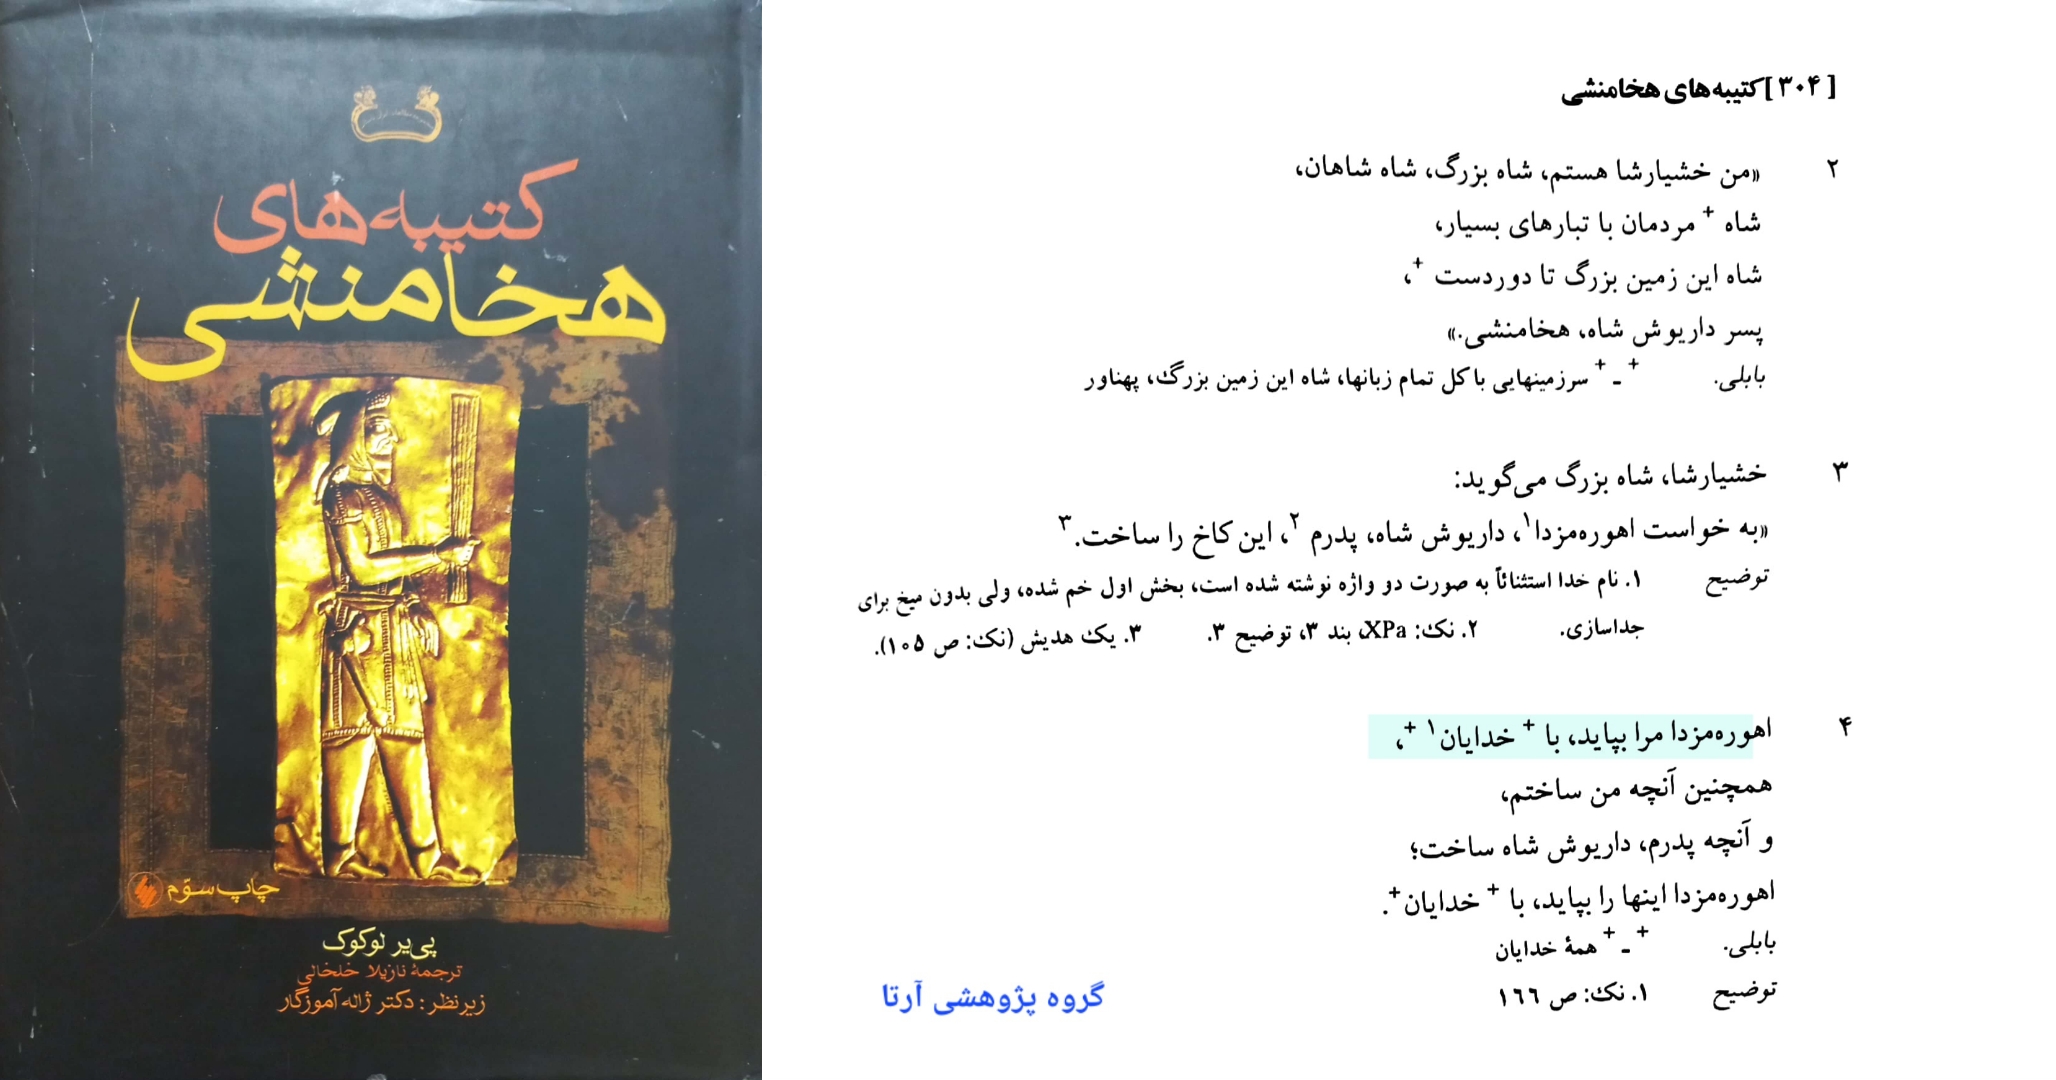 کتیبه‌های
هخامنشی
چاپ سوّم
پی‌یر لوکوک
ترجمهٔ نازیلا خلخالی
زیرنظر: دکتر ژاله آموزگار
[ ۳۰۴ ] کتیبه‌های هخامنشی
۲ «من خشیارشا هستم، شاه بزرگ، شاه شاهان،
شاه + مردمان با تبارهای بسیار،
شاه این زمین بزرگ تا دوردست +،
پسر داریوش شاه، هخامنشی.»
بابلی. + ـ + سرزمینهایی با کل تمام زبانها، شاه این زمین بزرگ، پهناور
۳ خشیارشا، شاه بزرگ می‌گوید:
«به خواست اهوره‌مزدا۱، داریوش شاه، پدرم ۲، این کاخ را ساخت. ۳
توضیح ۱. نام خدا استثنائاً به صورت دو واژه نوشته شده است، بخش اول خم شده، ولی بدون میخ برای
جداسازی. ۲. نک: XPa، بند ۳، توضیح ۳. ۳. یک هدیش (نک: ص ۱۰۵).
۴ اهوره‌مزدا مرا بپاید، با + خدایان۱ +،
همچنین آنچه من ساختم،
و آنچه پدرم، داریوش شاه ساخت؛
اهوره‌مزدا اینها را بپاید، با + خدایان+.
بابلی. + ـ + همهٔ خدایان
توضیح ۱. نک: ص ۱۶۶
گروه پژوهشی آرتا